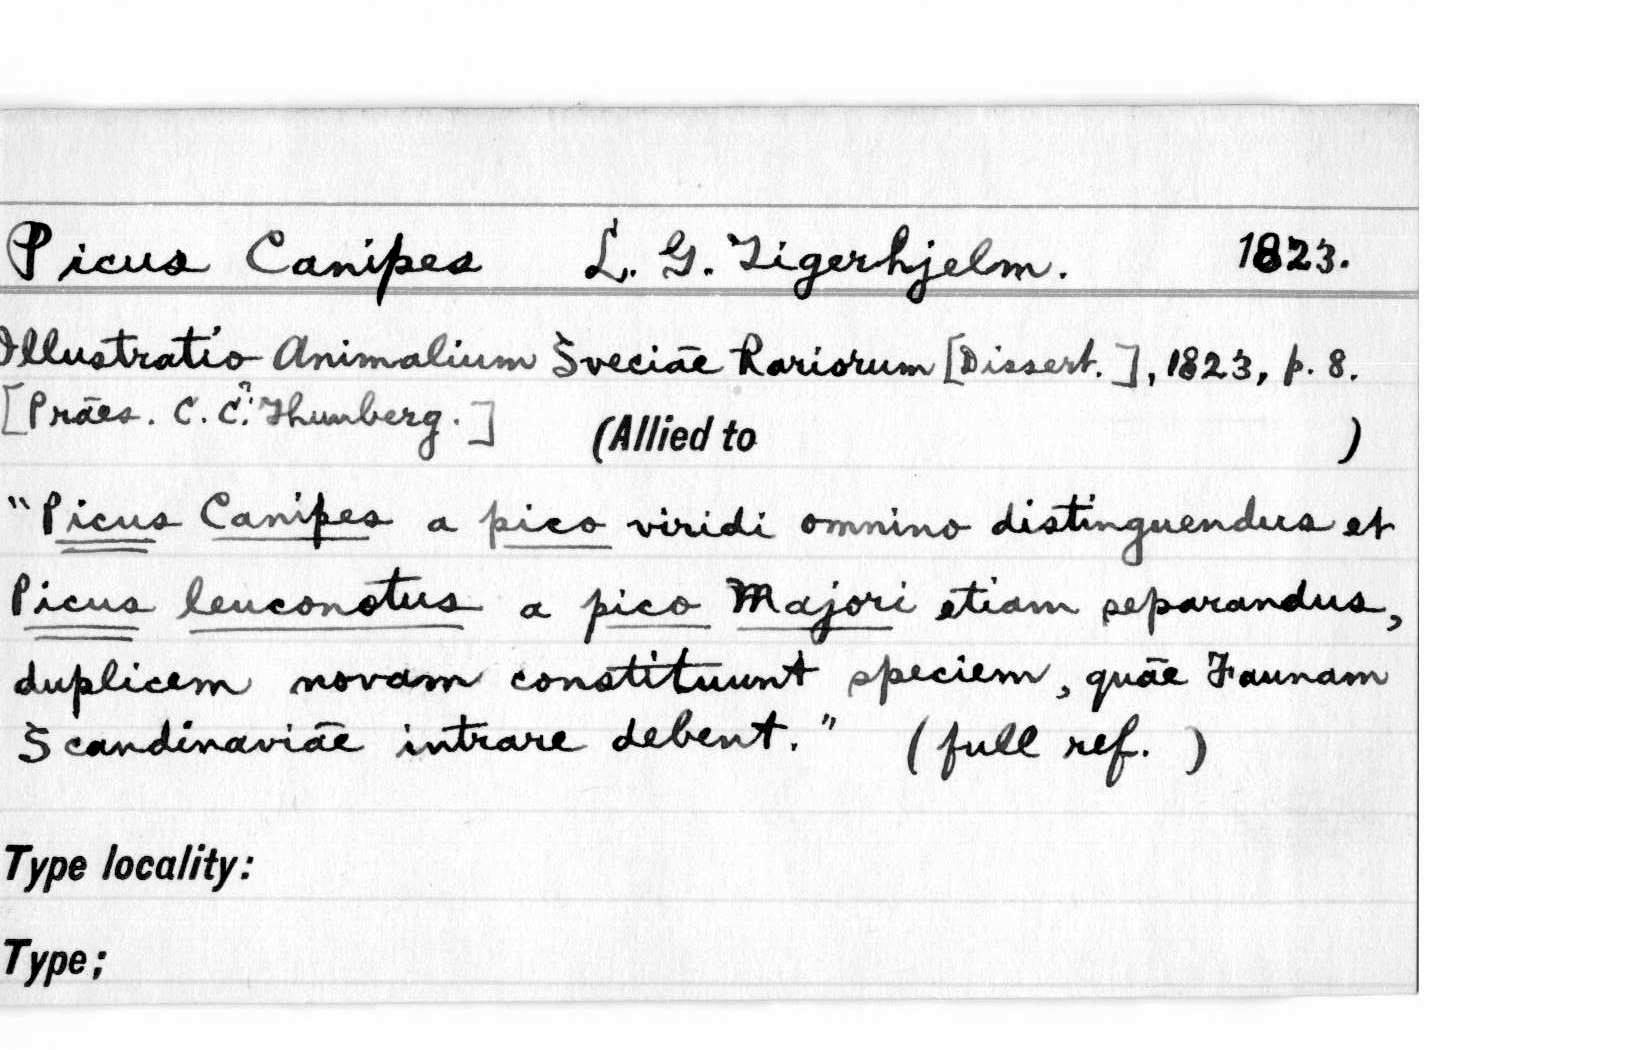 Picus Canipes L. G. Tigerhjelm. 1823.
Illustratio Animalium Sveciāe Rariorum [Dissert.], 1823, p. 8.
[Prāes. C. C. Thunberg.]
(Allied to )
"Picus Canipes a pico viridi omnino distinguendus et
Picus leuconotus a pico Majori etiam separandus,
duplicem novam constituunt speciem, quāe Faunam
Scandinaviāe intrare debent." (full ref. )
Type locality:
Type;